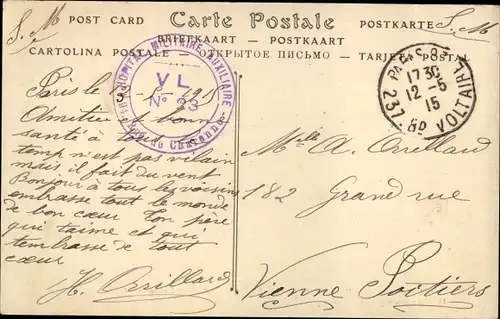 S. M POST CARD Carte Postale POSTKARTE S. M
BRIEFKAART — POSTKAART
CARTOLINA POSTALE — ОТКРЫТОЕ ПИСЬМО — TARJETA POSTAL
HOPITAL MILITAIRE AUXILIAIRE
V L
N° 33
de Charonne
PARIS
1730
12-5
15
237 BD VOLTAIRE
Paris le 1915
Amitier et bonne
santé à tous le
temp n'est pas vilain
mais il fait du vent
Bonjour à tous les voisins
embrasse tout le monde
de bon cœur Ton père
qui t'aime et qui
tembrasse de tout
cœur
H. Orrillard
Melle A. Orrillard
182 Grand rue
Vienne Poitiers